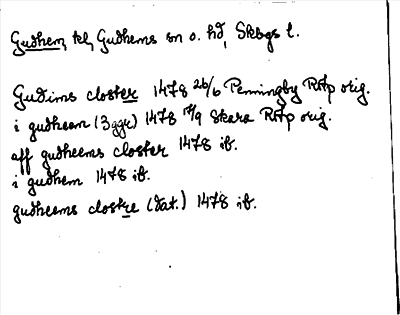 Gudhem, kl, Gudhems sn o. hd, Skbgs l.
Gudims closter 1478 26/6 Penningby RAp orig.
i gudheem (3 ggr) 1478 17/9 Skara RAp orig.
aff gudheems closter 1478 ib.
i gudhem 1478 ib.
gudheems clostre (dat.) 1478 ib.